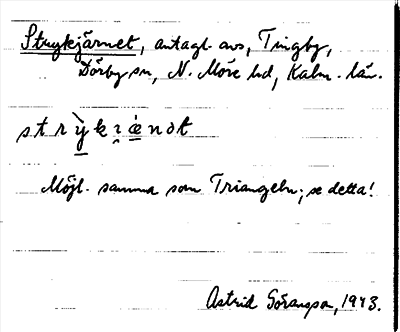 Strykjärnet, antagl. avs, Tingby,
Dörby sn, N. Möre hd, Kalm. län.
strỳkɪæ̀nət
Möjl. samma som Triangeln; se detta!
Astrid Göransson, 1943.